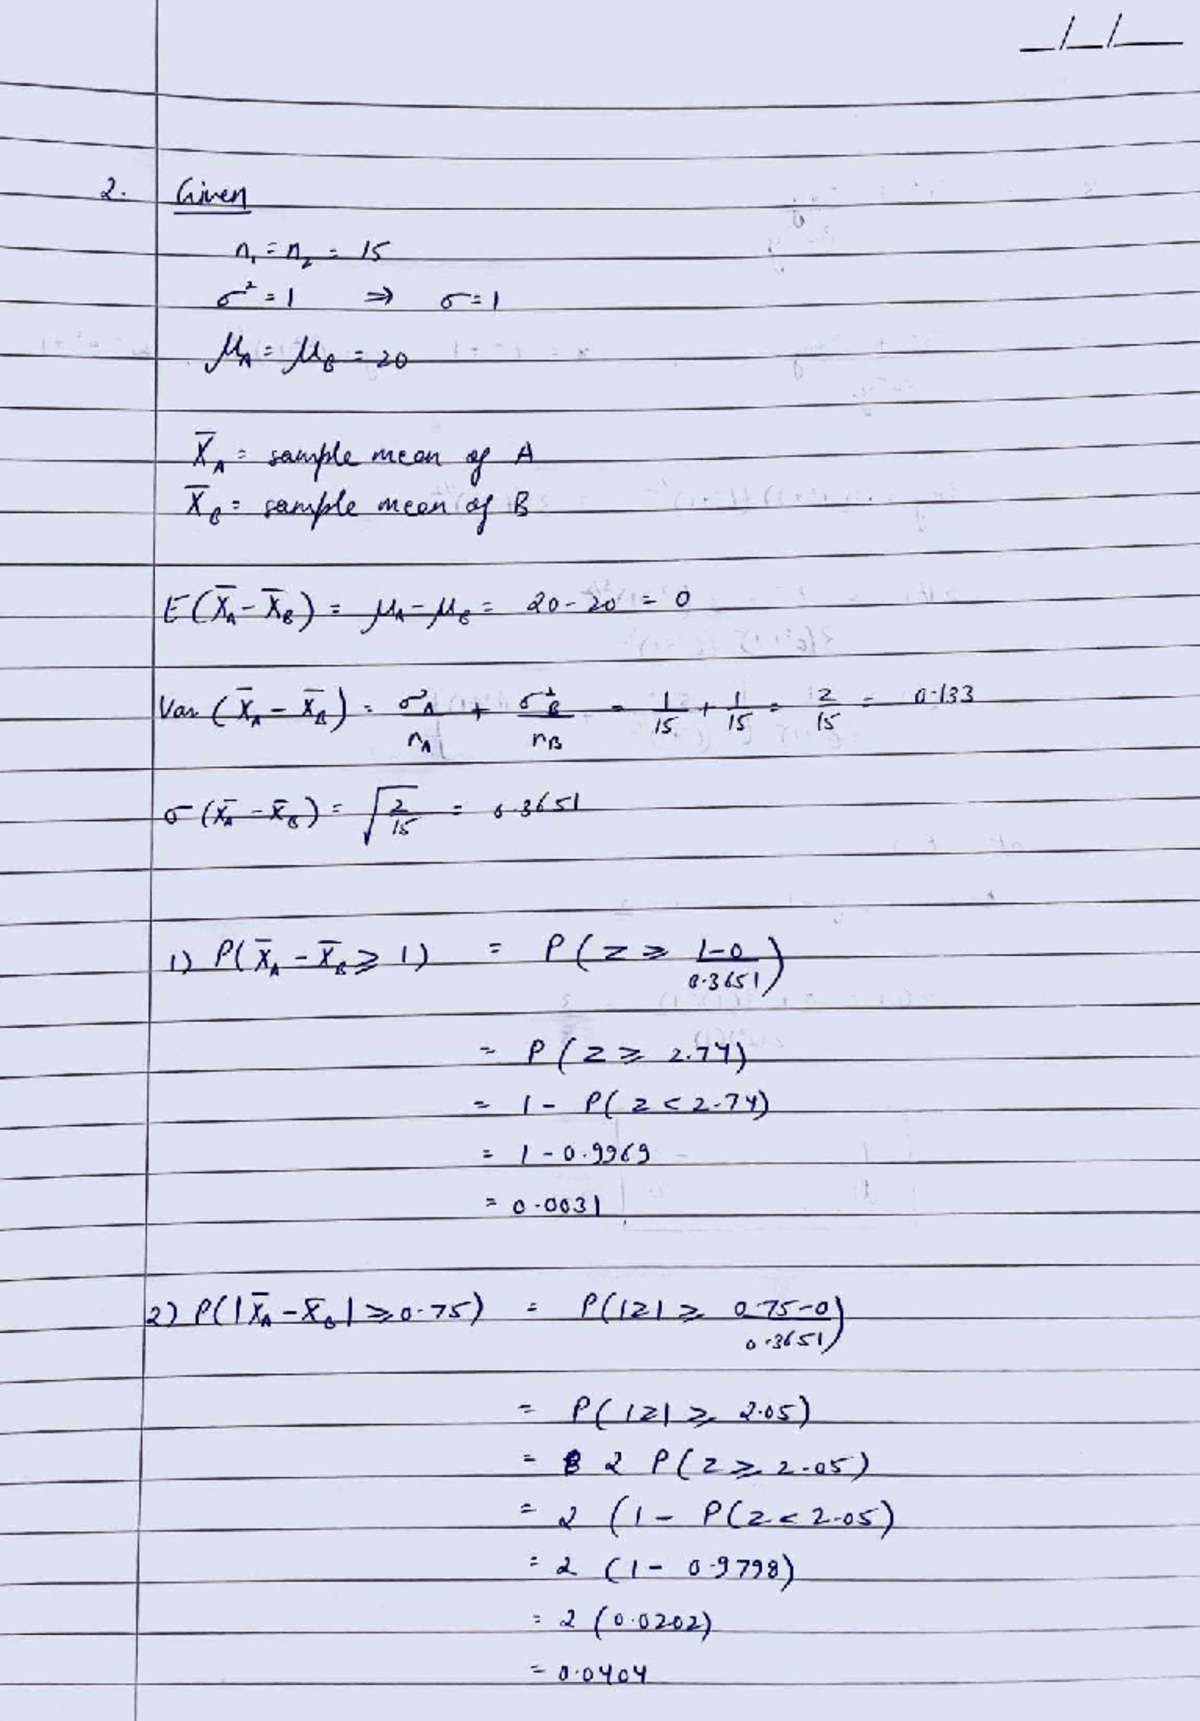 _/_/_
2. Given
n₁ = n₂ = 15
σ² = 1 ⇒ σ = 1
μ_A = μ_B = 20
X̄_A = sample mean of A
X̄_B = sample mean of B
E(X̄_A - X̄_B) = μ_A - μ_B = 20 - 20 = 0
Var (X̄_A - X̄_B) = σ²_A/n_A + σ²_B/n_B = 1/15 + 1/15 = 2/15 = 0.133
σ (X̄_A - X̄_B) = √(2/15) = 0.3651
1) P(X̄_A - X̄_B ≥ 1) = P(Z ≥ (1-0)/0.3651)
= P(Z ≥ 2.74)
= 1 - P(Z < 2.74)
= 1 - 0.9969
= 0.0031
2) P(|X̄_A - X̄_B| ≥ 0.75) = P(|Z| ≥ (0.75-0)/0.3651)
= P(|Z| ≥ 2.05)
= 2 P(Z ≥ 2.05)
= 2 (1 - P(Z < 2.05)
= 2 (1 - 0.9798)
= 2 (0.0202)
= 0.0404